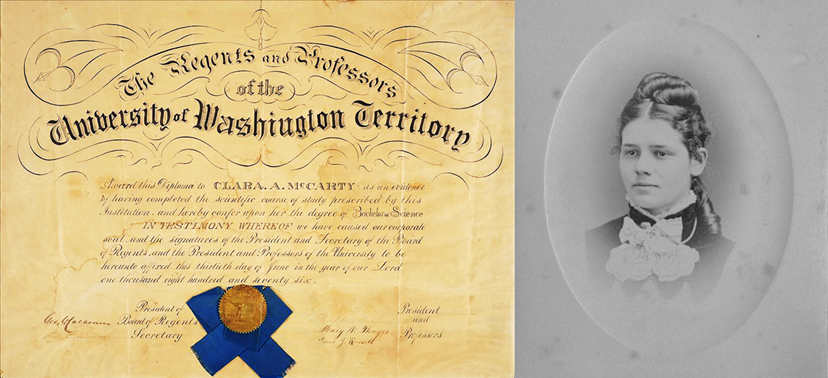 The Regents and Professors
of the
University of Washington Territory
Award this Diploma to CLARA. A. McCARTY as an evidence
of having completed the scientific course of study prescribed by this
Institution: and hereby confer upon her the degree of Bachelor of Science
IN TESTIMONY WHEREOF we have caused our corporate
seal and the signatures of the President and Secretary of the Board
of Regents, and the President and Professors of the University to be
hereunto affixed this thirtieth day of June in the year of our Lord
one thousand eight hundred and seventy six.
President of
Board of Regents
Secretary
President
and
Professors